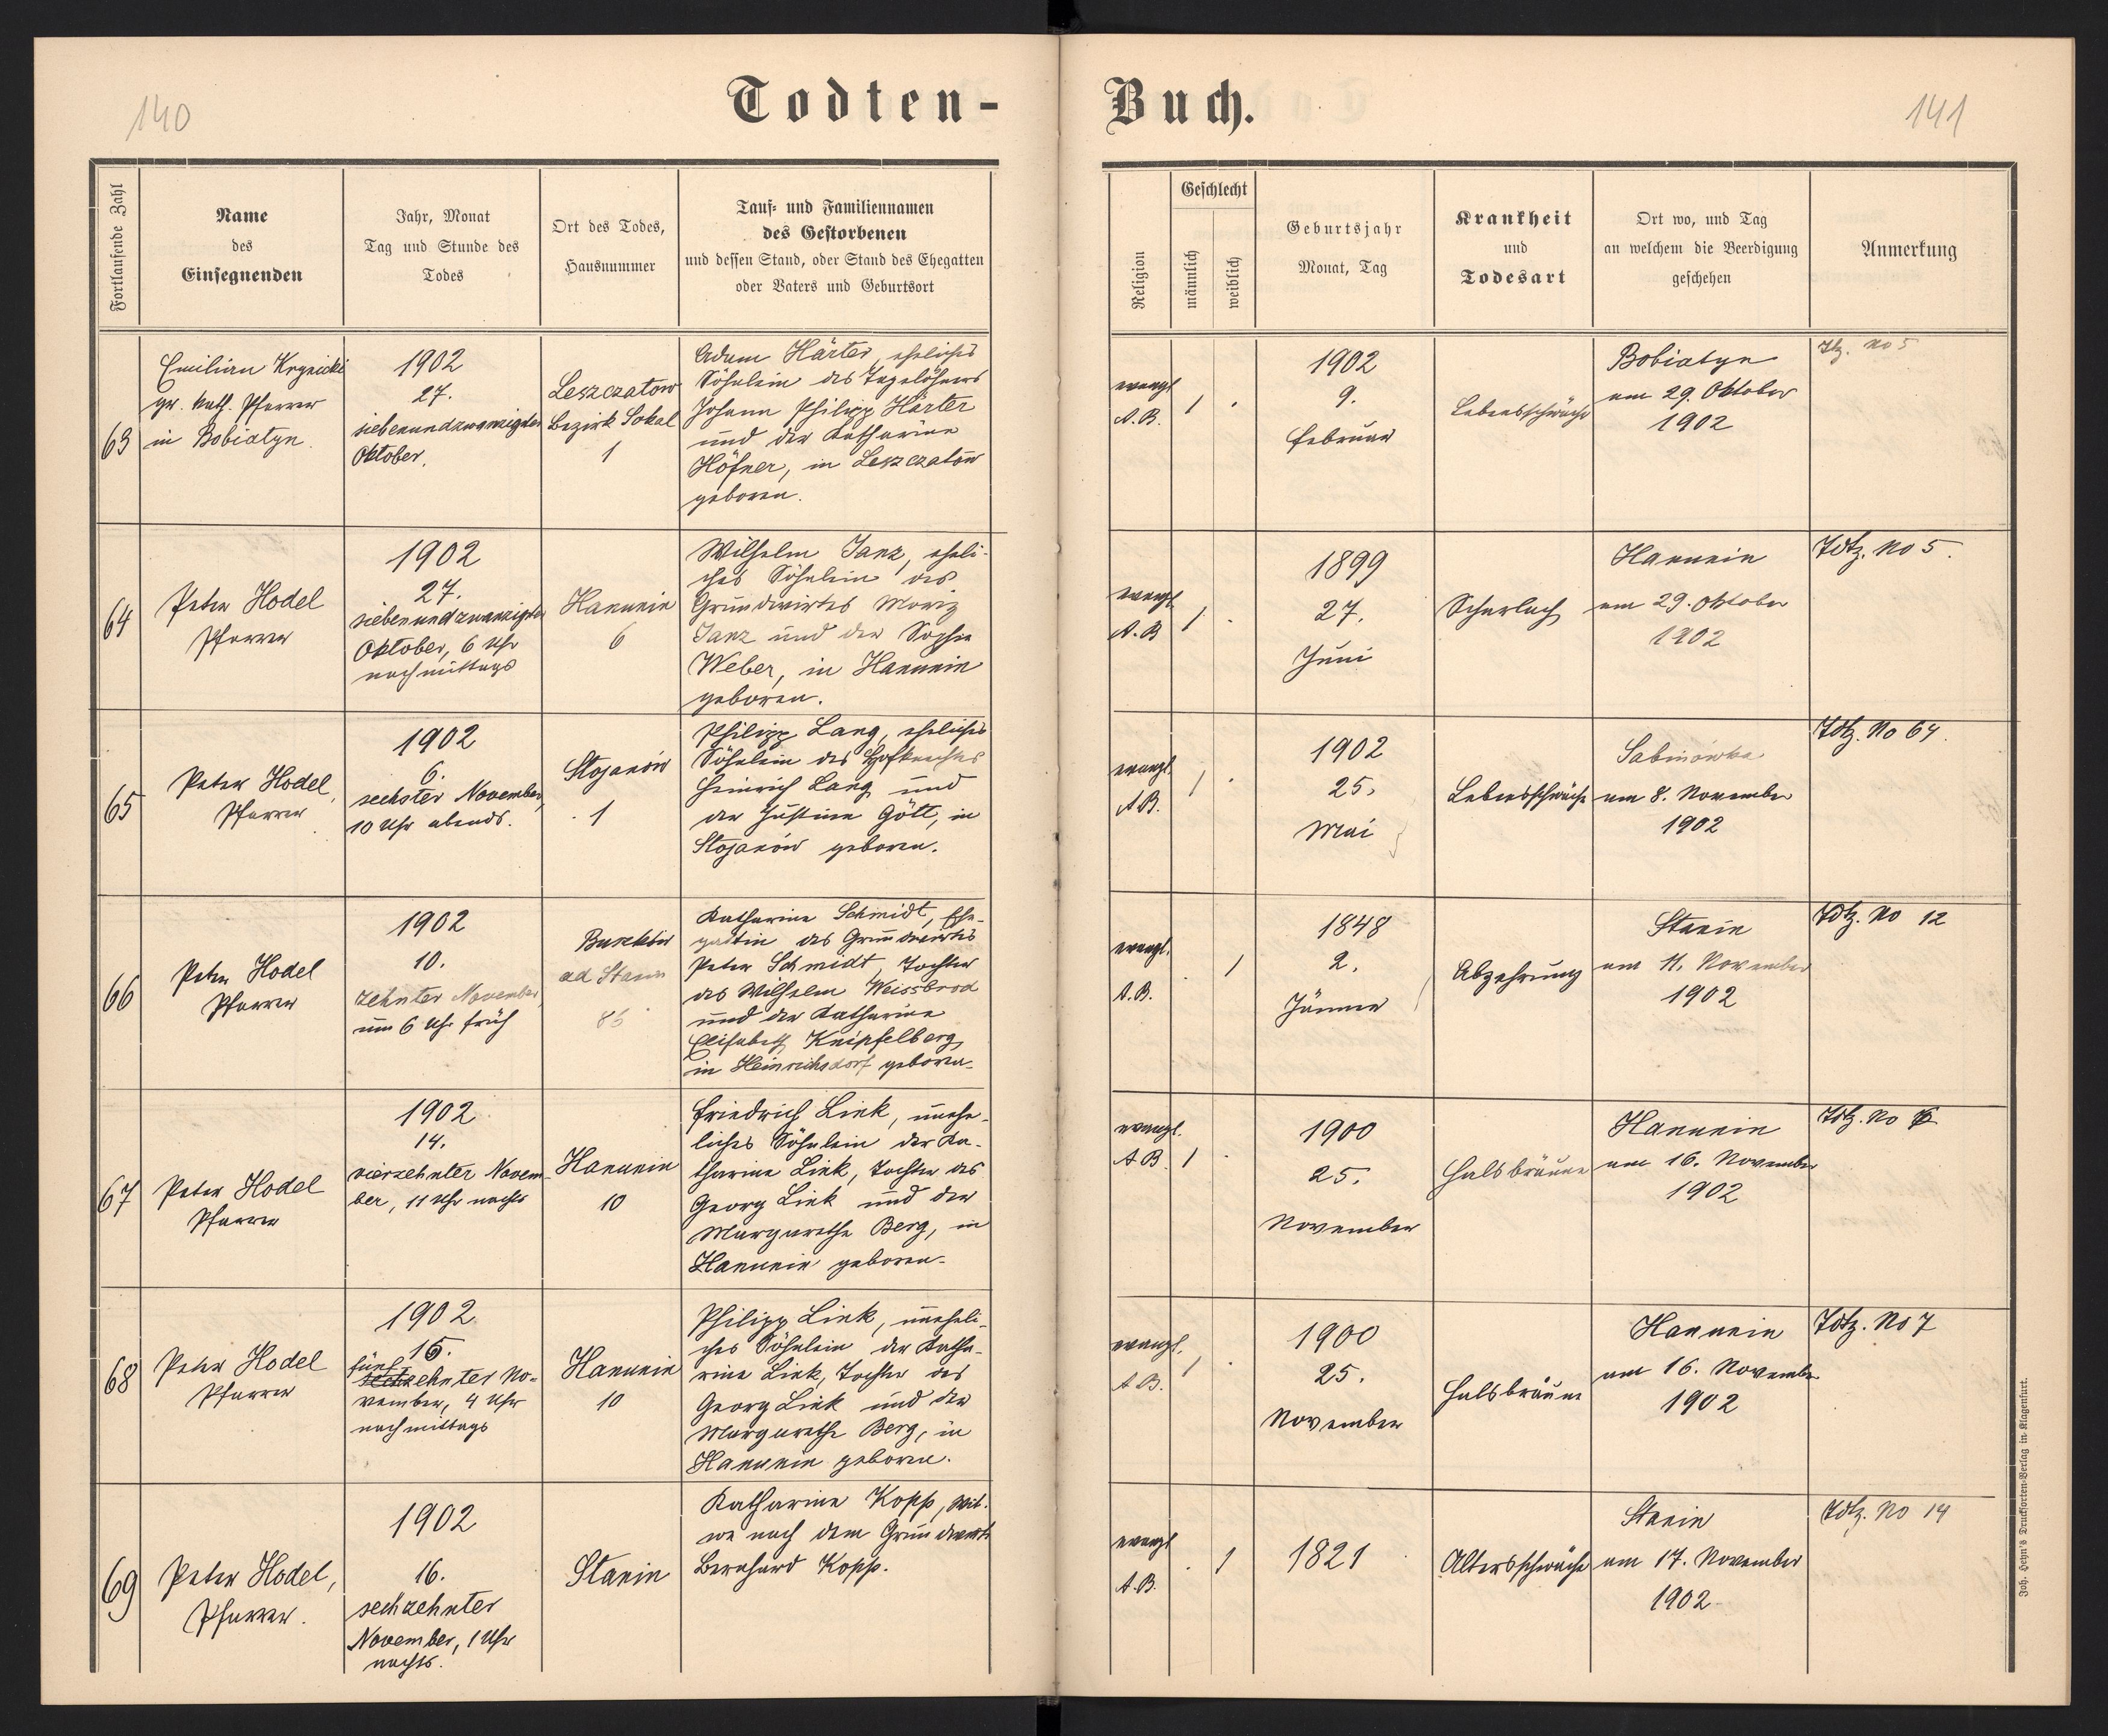 140
Todten-
Buch.
141
Fortlaufende Zahl
Name
des
Einsegnenden
Jahr, Monat
Tag und Stunde des
Todes
Ort des Todes,
Hausnummer
Tauf- und Familiennamen
des Gestorbenen
und dessen Stand, oder Stand des Ehegatten
oder Vaters und Geburtsort
Religion
Geschlecht
männlich
weiblich
Geburtsjahr
Monat, Tag
Krankheit
und
Todesart
Ort wo, und Tag
an welchem die Beerdigung
geschehen
Anmerkung
63
Emilian Krynicki
gr. kath. Pfarrer
in Bobiatyn.
1902
27.
siebenundzwanzigster
Oktober.
Leszczatow
Bezirk Sokal
1
Adam Härter, eheliches
Söhnlein des Tagelöhners
Johann Philipp Härter
und der Katharina
Höfner, in Leszczatów
geboren.
evangl.
A.B.
1 .
1902
9.
Februar
Lebensschwäche
Bobiatyn
am 29. Oktober
1902
No 5
64
Peter Hodel
Pfarrer
1902
27.
siebenundzwanzigster
Oktober, 6 Uhr
nachmittags
Hanunin
6
Wilhelm Janz, eheli-
ches Söhnlein des
Grundwirtes Moriz
Janz und der Sophia
Weber, in Hanunin
geboren.
evangl.
A.B
1 .
1899
27.
Juni
Scharlach
Hanunin
am 29. Oktober
1902
Tdtz. No 5.
65
Peter Hodel,
Pfarrer
1902
6.
sechster November,
10 Uhr abends.
Stojanów
1
Philipp Lang, eheliches
Söhnlein des Hofknechtes
Heinrich Lang und
der Justina Gött, in
Stojanów geboren.
evangl.
A.B.
1 .
1902
25.
Mai
Lebensschwäche
Sabinówka
am 8. November
1902
Tdtz. No 64.
66
Peter Hodel
Pfarrer
1902
10.
zehnter November,
um 6 Uhr früh
ad Stanin
86
Katharina Schmidt, Ehe-
gattin des Grundwirtes
Peter Schmidt, Tochter
des Wilhelm Weissbrod
und der Katharina
Elisabeth Knipfelberg,
in Heinrichsdorf geboren.
evangl.
A.B.
. 1
1848
2.
Jänner
Abzehrung
Stanin
am 11. November
1902
Tdtz. No 12
67
Peter Hodel
Pfarrer
1902
14.
vierzehnter Novem-
ber, 11 Uhr nachts
Hanunin
10
Friedrich Link, unehe-
liches Söhnlein der Ka-
tharina Link, Tochter des
Georg Link und der
Margarethe Berg, in
Hanunin geboren.
evangl.
A.B.
1 .
1900
25.
November
Halsbräune
Hanunin
am 16. November
1902
Tdtz. No 6
68
Peter Hodel
Pfarrer
1902
15.
fünf-
sechzehnter No-
vember, 4 Uhr
nachmittags
Hanunin
10
Philipp Link, uneheli-
ches Söhnlein der Katha-
rina Link, Tochter des
Georg Link und der
Margarethe Berg, in
Hanunin geboren.
evangl.
A.B.
1 .
1900
25.
November
Halsbräune
Hanunin
am 16. November
1902
Tdtz. No 7
69
Peter Hodel,
Pfarrer.
1902
16.
sechzehnter
November, 1 Uhr
nachts.
Stanin
Katharina Kopp, Wit-
we nach dem Grundwirte
Bernhard Kopp.
evangl.
A.B.
. 1
1821
Altersschwäche
Stanin
am 17. November
1902
Tdtz. No 14
Joh. Hehn's Drucksorten-Verlag in Klagenfurt.